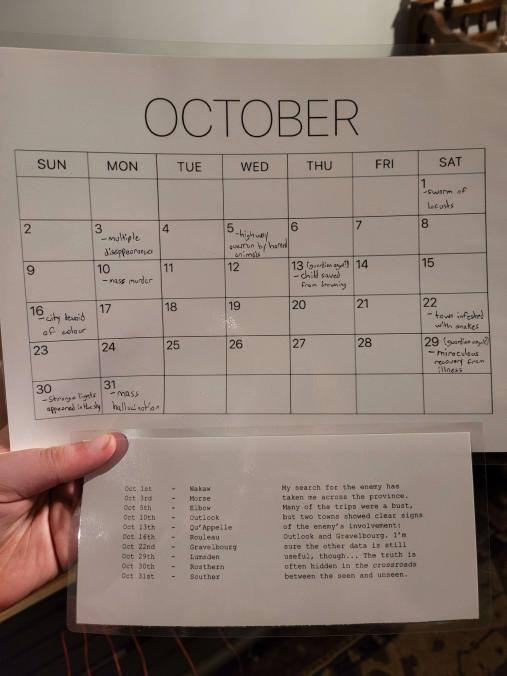 OCTOBER
SUN MON TUE WED THU FRI SAT
1
-swarm of
locusts
2 3 4 5 6 7 8
-multiple
disappearances
-highway
overrun by horned
animals
9 10 11 12 13 (guardian angel?) 14 15
-mass murder
-child saved
from drowning
16 17 18 19 20 21 22
-city devoid
of colour
-town infested
with snakes
23 24 25 26 27 28 29 (guardian angel?)
-miraculous
recovery from
illness
30 31
-Strange lights
appeared in the sky
-mass
hallucination
Oct 1st - Wakaw
Oct 3rd - Morse
Oct 5th - Elbow
Oct 10th - Outlook
Oct 13th - Qu'Appelle
Oct 16th - Rouleau
Oct 22nd - Gravelbourg
Oct 29th - Lumsden
Oct 30th - Rosthern
Oct 31st - Souther
My search for the enemy has
taken me across the province.
Many of the trips were a bust,
but two towns showed clear signs
of the enemy's involvement:
Outlook and Gravelbourg. I'm
sure the other data is still
useful, though... The truth is
often hidden in the crossroads
between the seen and unseen.